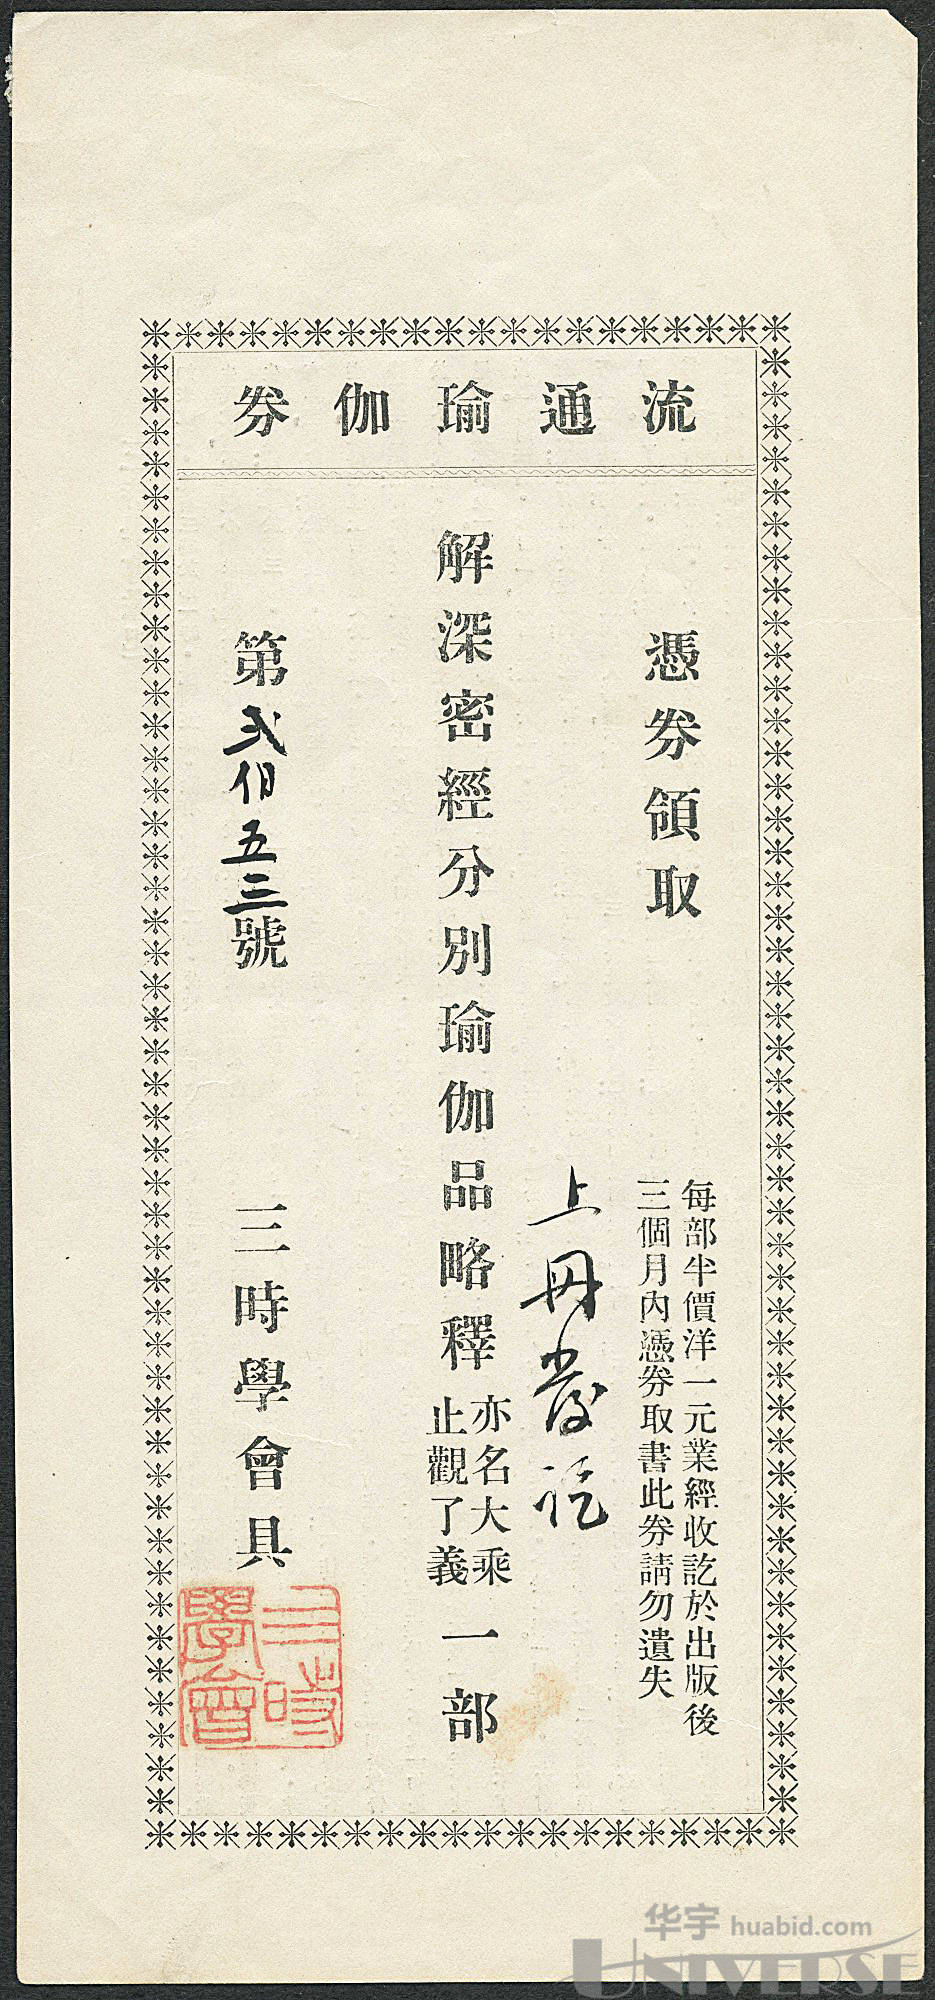 流通瑜伽券
憑券領取
每部半價洋一元業經收訖於出版後
三個月內憑券取書此券請勿遺失
上冊發訖
解深密經分別瑜伽品略釋
亦名大乘
止觀了義
一部
第弍佰五三號
三時學會具
三時
學會
华宇 huabid.com
UNIVERSE